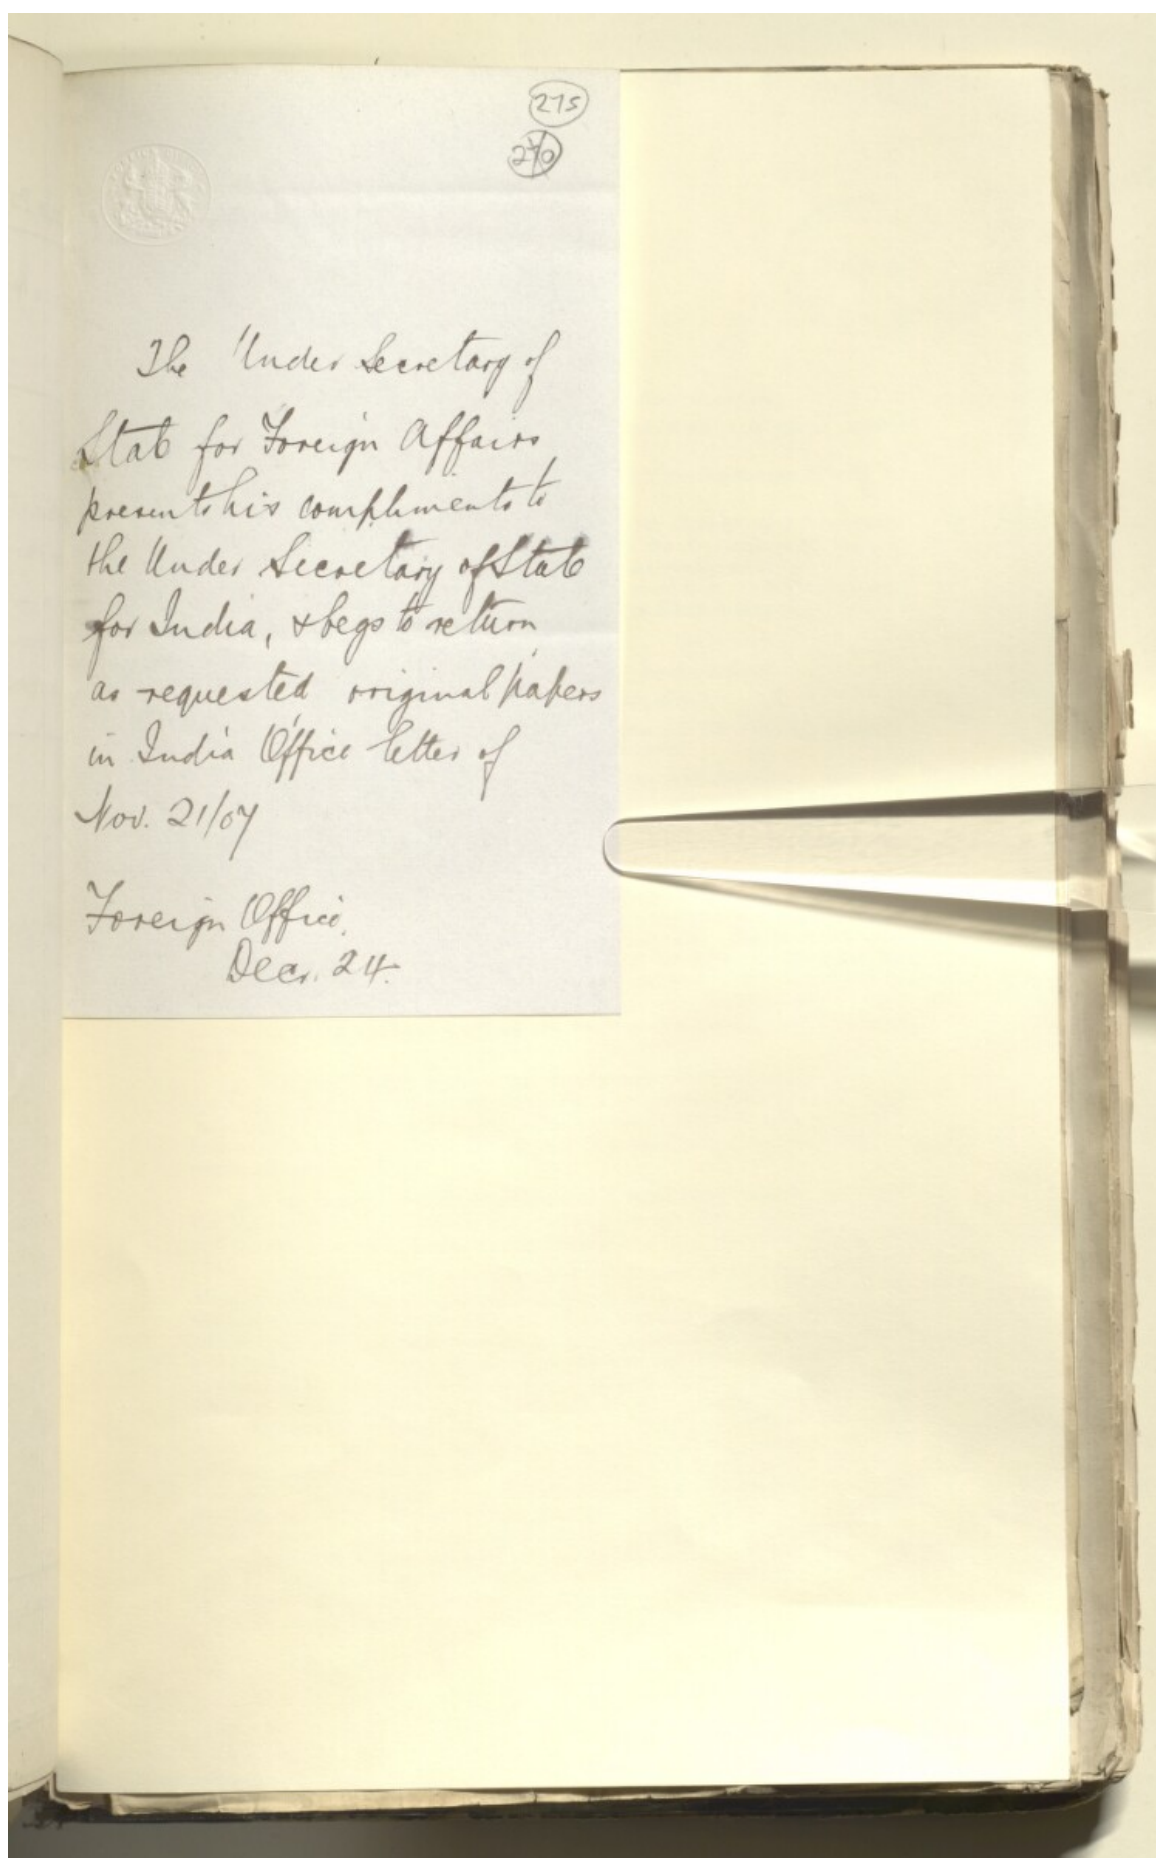 275
270
The Under Secretary of
State for Foreign Affairs
presents his compliments to
the Under Secretary of State
for India, & begs to return,
as requested original papers
in India Office letter of
Nov. 21/07
Foreign Office,
Decr. 24.